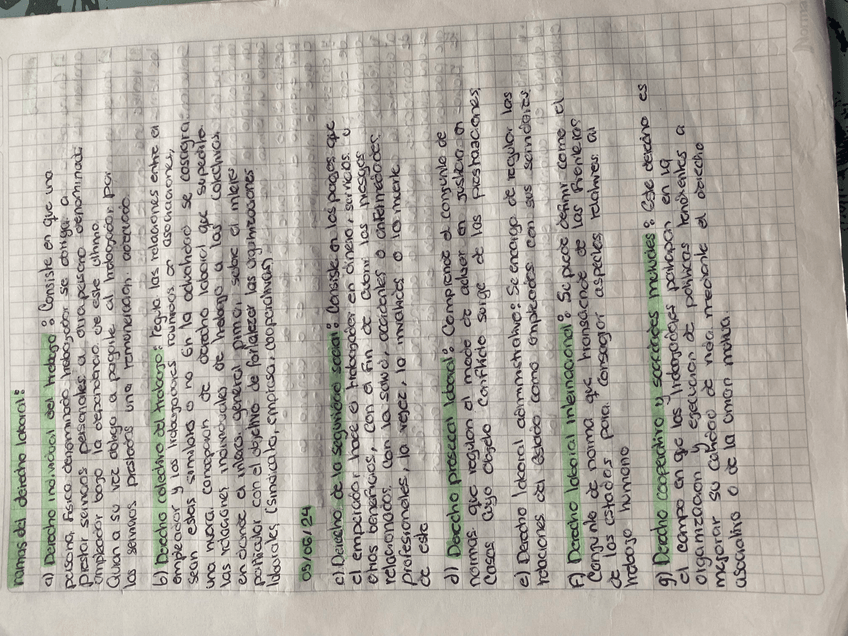 ramas del derecho laboral:
a) Derecho individual del trabajo: Consiste en que una
persona física denominado trabajador se obliga a
prestar servicios personales a otra persona denominada
empleador bajo la dependencia de este ultimo.
Quien a su vez obliga a pagarle al trabajador por
los servicios prestados una remuneración adecuada.
b) Derecho colectivo del trabajo: regula las relaciones entre el
empleador y los trabajadores reunidos en asociaciones,
sean estas similares o no. En la actualidad se consagra
una nueva concepcion de derecho laboral que supedita
las relaciones individuales de trabajo a las colectivas,
en donde el interes general prima sobre el interes
particular con el objetivo de fortalecer las organizaciones
laborales (sindicato, empresa, cooperativas)
05/06/24
c) Derecho de la seguridad social: Consiste en los pagos que
el empleador hace al trabajador en dinero, servicios u
otros beneficios, con el fin de cubrir los riesgos
relacionados con la salud, accidentes o enfermedades
profesionales, la vejez, la invalidez o la muerte
de este
d) Derecho procesal laboral: Comprende el conjunto de
normas que regulan el modo de actuar en justicia en
casos cuyo objeto conflicto surge de las prestaciones.
e) Derecho laboral administrativo: Se encarga de regular las
relaciones del estado como empleador con sus servidores
f) Derecho laboral internacional: Se puede definir como el
Conjunto de norma que transciende de las fronteras
de los estados para consagrar aspectos relativos al
trabajo humano
g) Derecho cooperativo y sociedades mutuales: Este derecho es
el campo en que los trabajadores participan en la
organizacion y ejecucion de politicas tendientes a
mejorar su calidad de vida mediante el derecho
asociativo o de la union mutua.
Norma